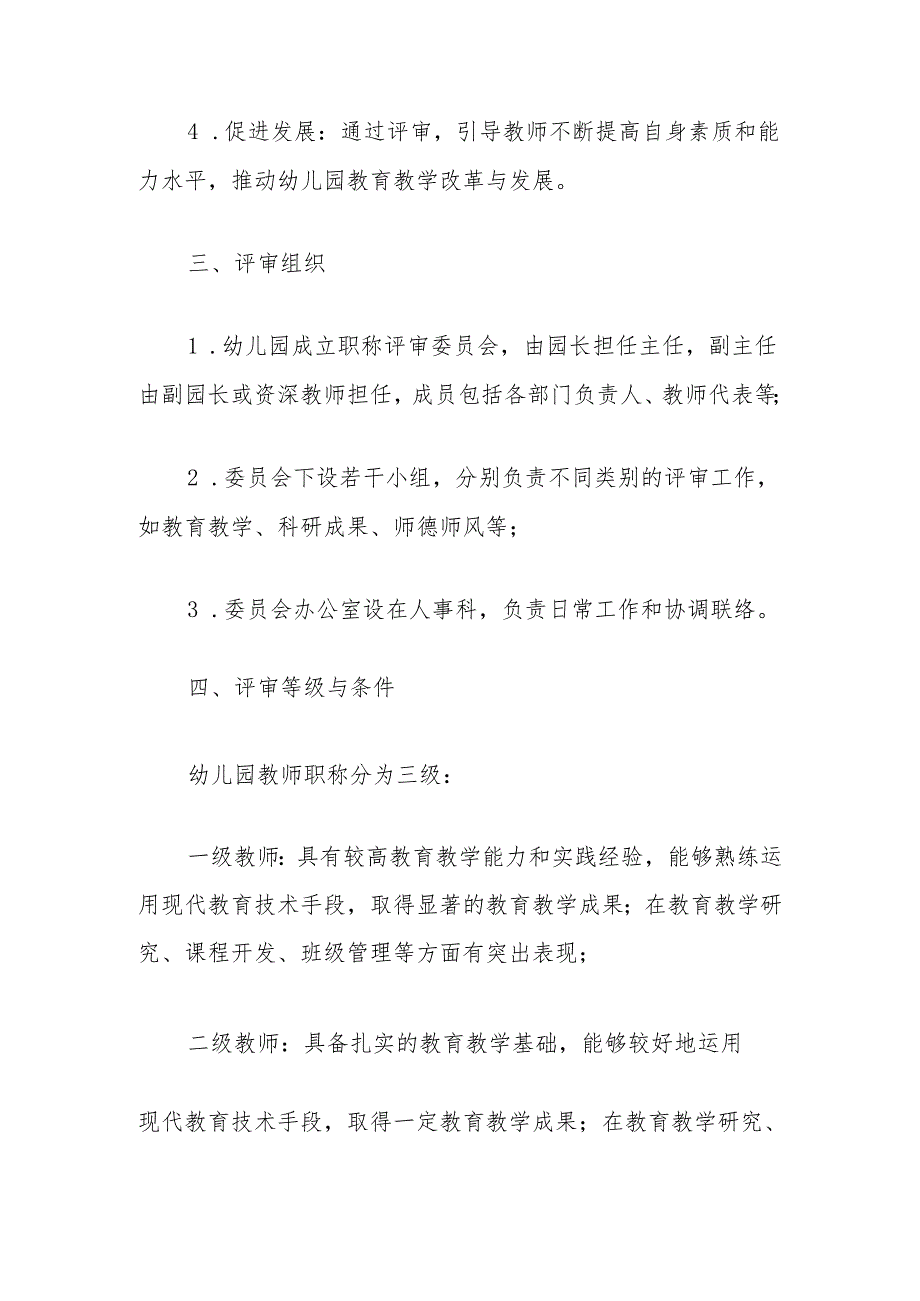 4 .促进发展：通过评审，引导教师不断提高自身素质和能
力水平，推动幼儿园教育教学改革与发展。
三、评审组织
1 .幼儿园成立职称评审委员会，由园长担任主任，副主任
由副园长或资深教师担任，成员包括各部门负责人、教师代表等；
2 .委员会下设若干小组，分别负责不同类别的评审工作，
如教育教学、科研成果、师德师风等；
3 .委员会办公室设在人事科，负责日常工作和协调联络。
四、评审等级与条件
幼儿园教师职称分为三级：
一级教师：具有较高教育教学能力和实践经验，能够熟练运
用现代教育技术手段，取得显著的教育教学成果；在教育教学研
究、课程开发、班级管理等方面有突出表现；
二级教师：具备扎实的教育教学基础，能够较好地运用
现代教育技术手段，取得一定教育教学成果；在教育教学研究、